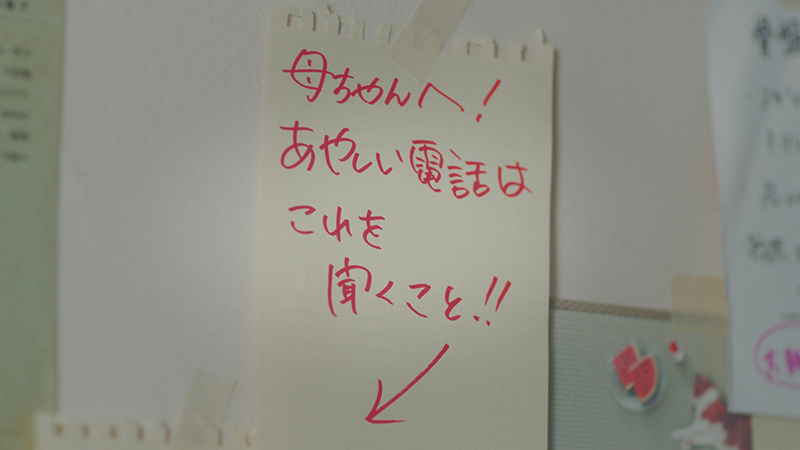 母ちゃんへ!
あやしい電話は
これを
聞くこと!!